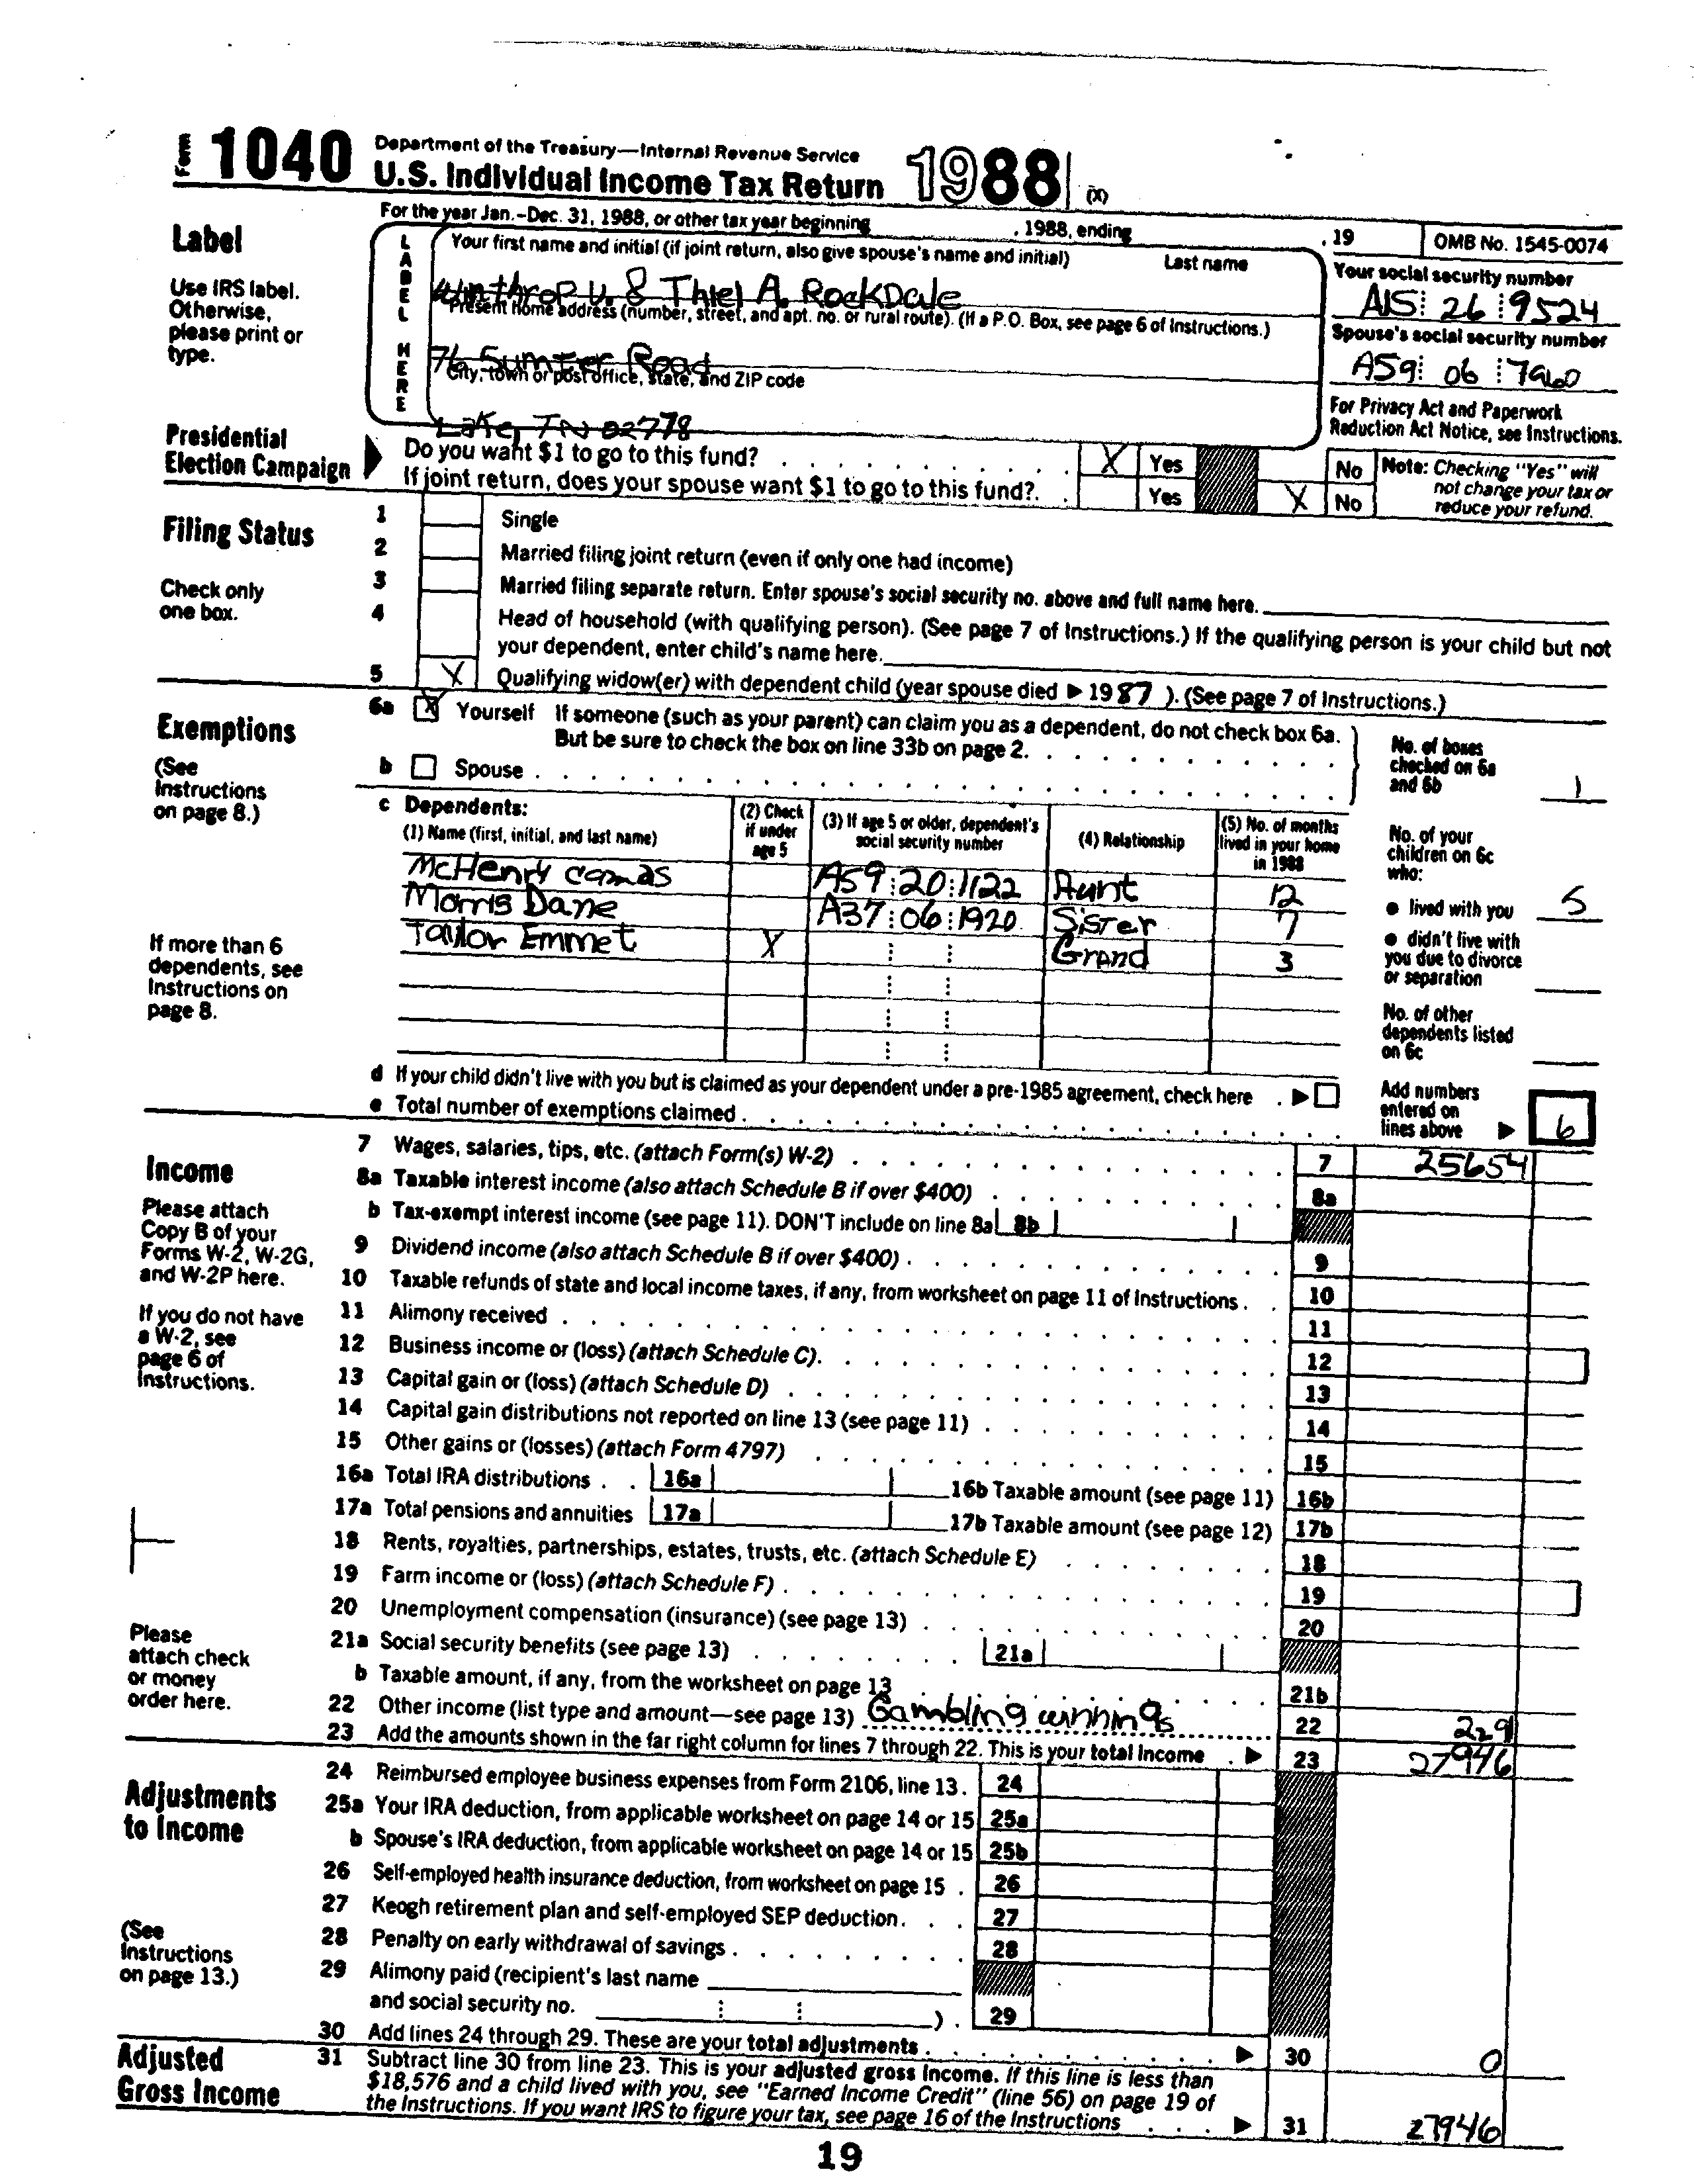 Form 1040 Department of the Treasury—Internal Revenue Service
U.S. Individual Income Tax Return 1988 (X)
For the year Jan.-Dec. 31, 1988, or other tax year beginning , 1988, ending , 19 OMB No. 1545-0074
Label
Use IRS label.
Otherwise,
please print or
type.
LABEL HERE
Your first name and initial (if joint return, also give spouse's name and initial) Last name
Winthrop U. & Thiel A. RockDale
Present home address (number, street, and apt. no. or rural route). (If a P.O. Box, see page 6 of Instructions.)
76 Sumter Road
City, town or post office, state, and ZIP code
Lake, TN 02778
Your social security number
A15 26 9524
Spouse's social security number
A59 06 7960
For Privacy Act and Paperwork
Reduction Act Notice, see Instructions.
Presidential
Election Campaign
Do you want $1 to go to this fund? X Yes No
If joint return, does your spouse want $1 to go to this fund? Yes X No
Note: Checking "Yes" will
not change your tax or
reduce your refund.
Filing Status
Check only
one box.
1 Single
2 Married filing joint return (even if only one had income)
3 Married filing separate return. Enter spouse's social security no. above and full name here.
4 Head of household (with qualifying person). (See page 7 of Instructions.) If the qualifying person is your child but not
your dependent, enter child's name here.
5 X Qualifying widow(er) with dependent child (year spouse died ▶ 1987 ). (See page 7 of Instructions.)
Exemptions
(See
Instructions
on page 8.)
If more than 6
dependents, see
Instructions on
page 8.
6a X Yourself If someone (such as your parent) can claim you as a dependent, do not check box 6a.
But be sure to check the box on line 33b on page 2.
b Spouse
No. of boxes
checked on 6a
and 6b 1
c Dependents:
(1) Name (first, initial, and last name)
(2) Check
if under
age 5
(3) If age 5 or older, dependent's
social security number
(4) Relationship
(5) No. of months
lived in your home
in 1988
McHenry Camas A59 20 1122 Aunt 12
Morris Dane A37 06 1920 Sister 7
Taylor Emmet X Grand 3
No. of your
children on 6c
who:
● lived with you 5
● didn't live with
you due to divorce
or separation
No. of other
dependents listed
on 6c
d If your child didn't live with you but is claimed as your dependent under a pre-1985 agreement, check here ▶
e Total number of exemptions claimed
Add numbers
entered on
lines above ▶ 6
Income
Please attach
Copy B of your
Forms W-2, W-2G,
and W-2P here.
If you do not have
a W-2, see
page 6 of
Instructions.
Please
attach check
or money
order here.
7 Wages, salaries, tips, etc. (attach Form(s) W-2) 7 25654
8a Taxable interest income (also attach Schedule B if over $400) 8a
b Tax-exempt interest income (see page 11). DON'T include on line 8a 8b
9 Dividend income (also attach Schedule B if over $400) 9
10 Taxable refunds of state and local income taxes, if any, from worksheet on page 11 of Instructions 10
11 Alimony received 11
12 Business income or (loss) (attach Schedule C) 12
13 Capital gain or (loss) (attach Schedule D) 13
14 Capital gain distributions not reported on line 13 (see page 11) 14
15 Other gains or (losses) (attach Form 4797) 15
16a Total IRA distributions 16a 16b Taxable amount (see page 11) 16b
17a Total pensions and annuities 17a 17b Taxable amount (see page 12) 17b
18 Rents, royalties, partnerships, estates, trusts, etc. (attach Schedule E) 18
19 Farm income or (loss) (attach Schedule F) 19
20 Unemployment compensation (insurance) (see page 13) 20
21a Social security benefits (see page 13) 21a
b Taxable amount, if any, from the worksheet on page 13 21b
22 Other income (list type and amount—see page 13) Gambling winnings 22 2291
23 Add the amounts shown in the far right column for lines 7 through 22. This is your total income ▶ 23 27946
Adjustments
to Income
(See
Instructions
on page 13.)
24 Reimbursed employee business expenses from Form 2106, line 13. 24
25a Your IRA deduction, from applicable worksheet on page 14 or 15 25a
b Spouse's IRA deduction, from applicable worksheet on page 14 or 15 25b
26 Self-employed health insurance deduction, from worksheet on page 15 26
27 Keogh retirement plan and self-employed SEP deduction 27
28 Penalty on early withdrawal of savings 28
29 Alimony paid (recipient's last name
and social security no. ) 29
30 Add lines 24 through 29. These are your total adjustments ▶ 30 0
Adjusted
Gross Income
31 Subtract line 30 from line 23. This is your adjusted gross income. If this line is less than
$18,576 and a child lived with you, see "Earned Income Credit" (line 56) on page 19 of
the Instructions. If you want IRS to figure your tax, see page 16 of the Instructions ▶ 31 27946
19